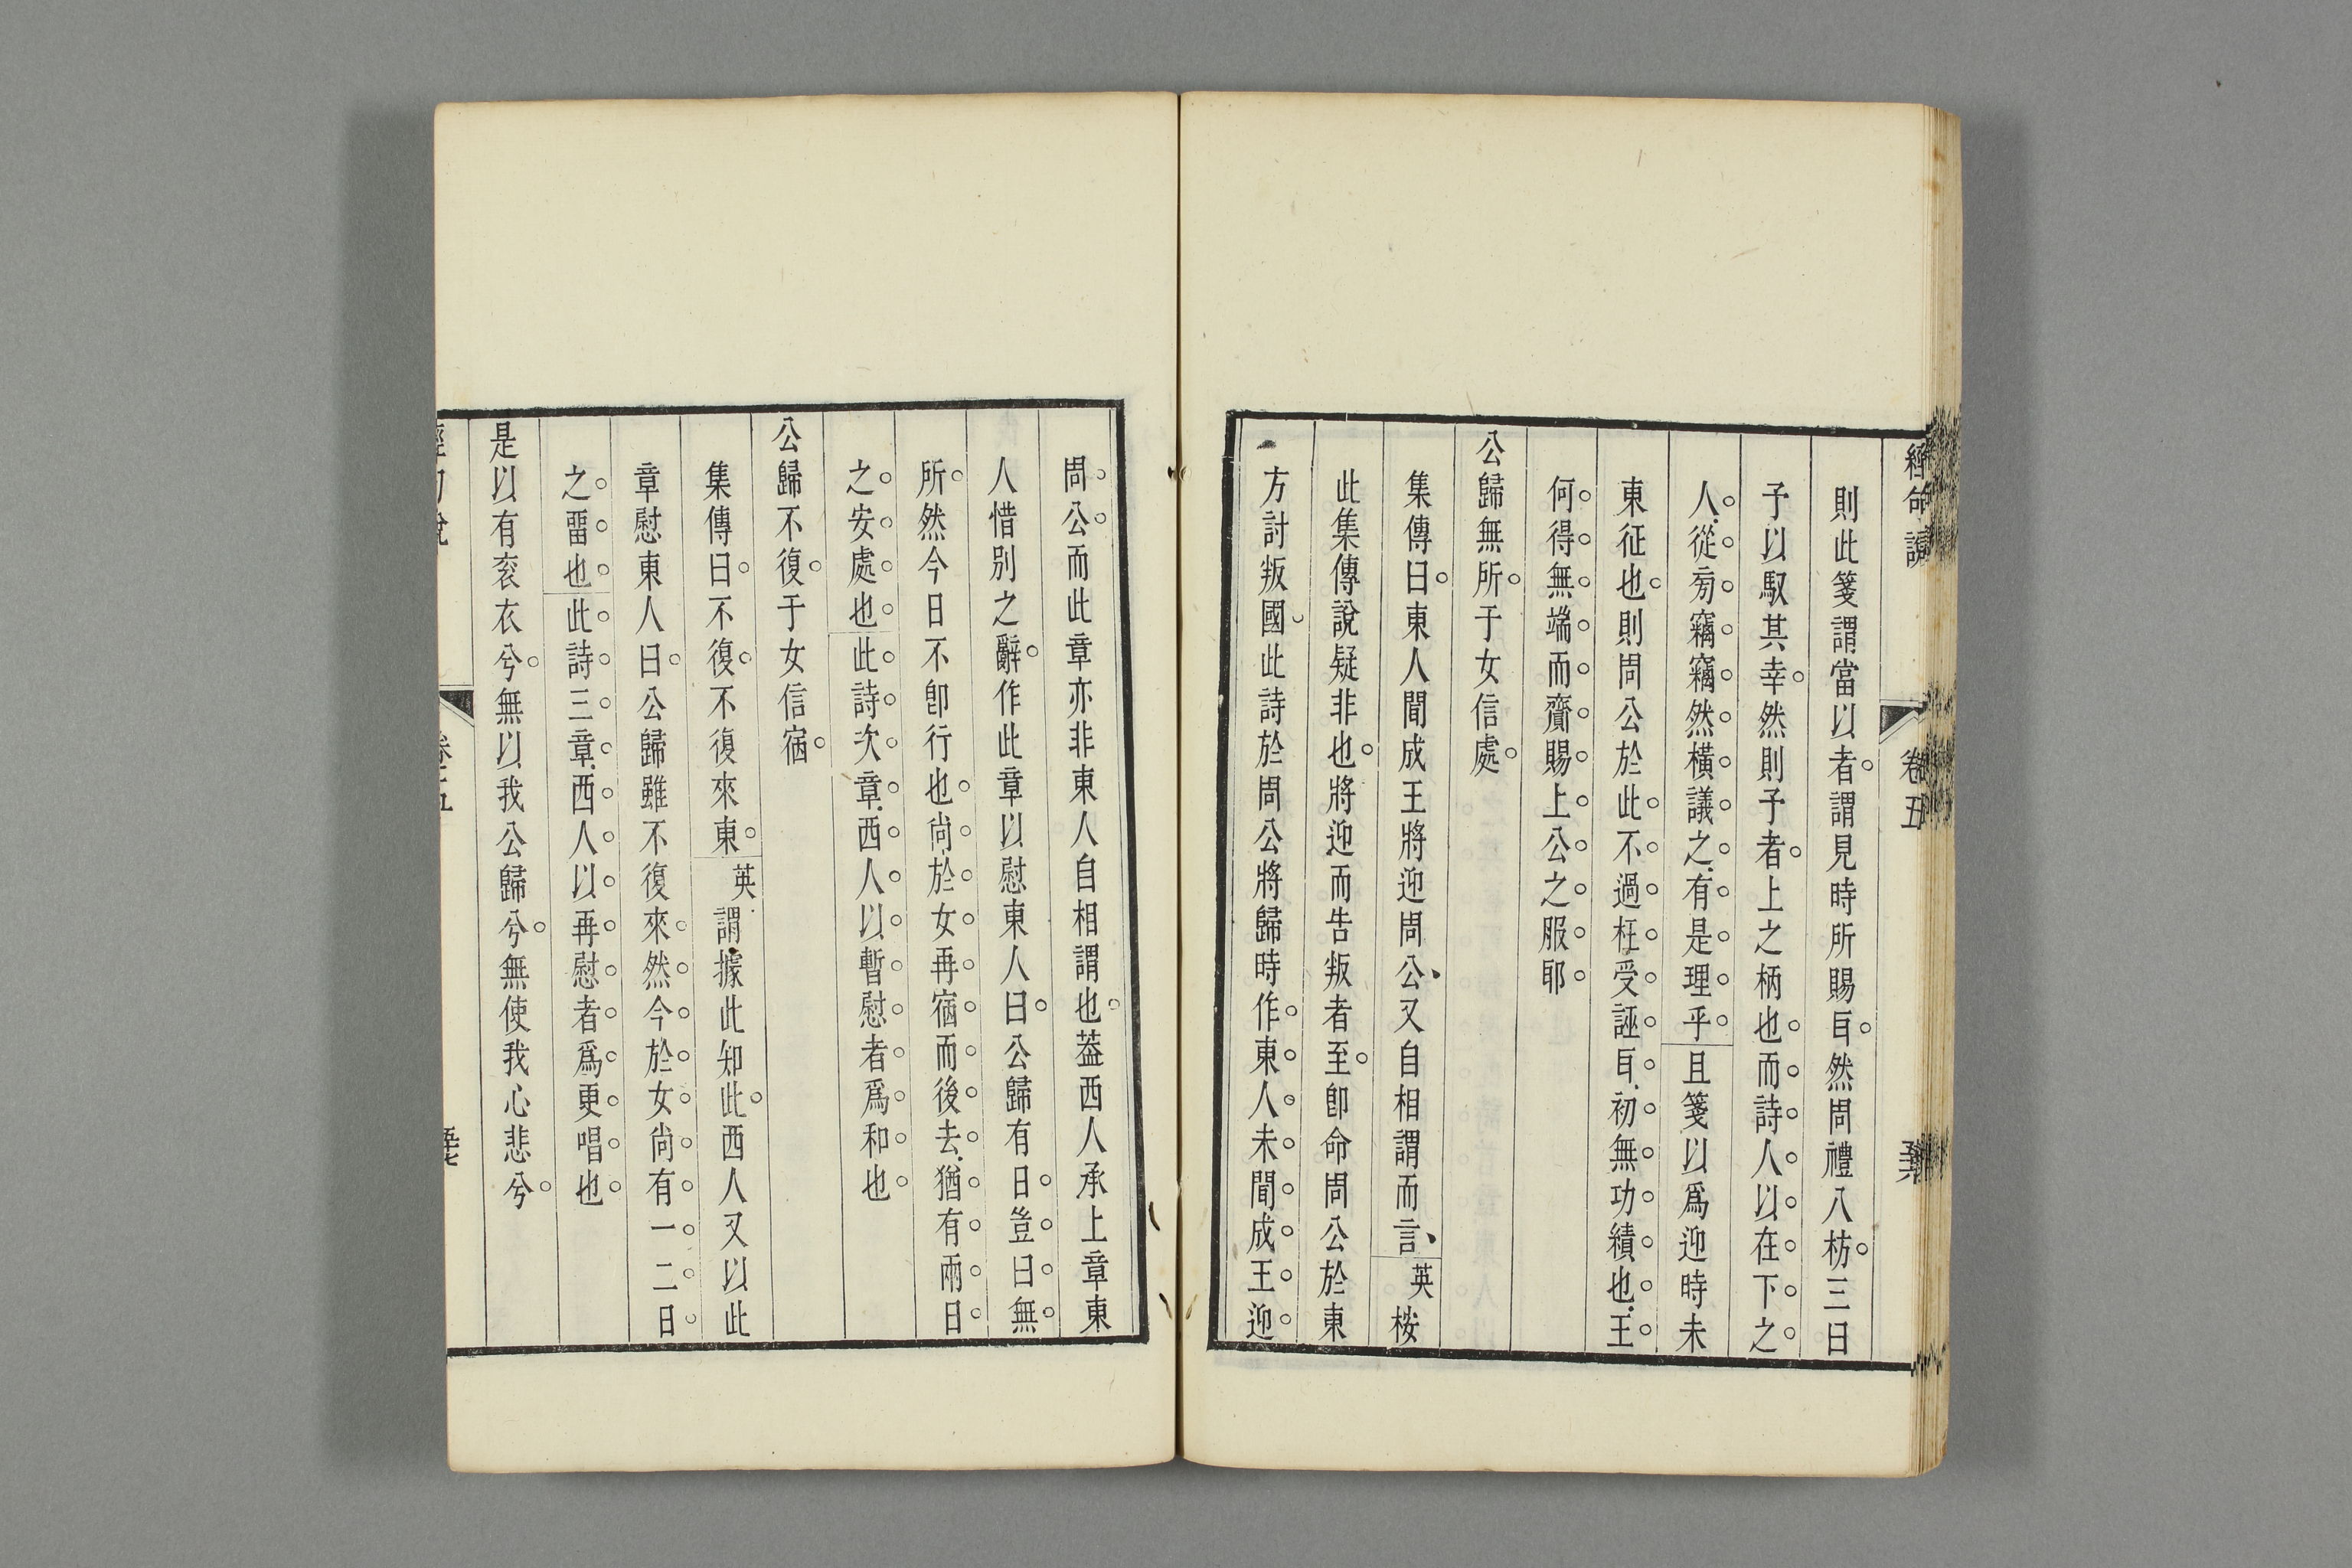 經句說
卷五
則此箋謂當以者謂見時所賜㠯然周禮八枋三曰
予以馭其幸然則予者上之柄也而詩人以在下之
人從㫄竊竊然橫議之有是理乎且箋以爲迎時未
東征也則周公於此不過枉受誣㠯初無功績也王
何得無端而齎賜上公之服耶
公歸無所于女信處
集傳曰東人聞成王將迎周公又自相謂而言英桉
此集傳說疑非也將迎而告叛者至卽命周公於東
方討叛國此詩於周公將歸時作東人未聞成王迎
周公而此章亦非東人自相謂也葢西人承上章東
人惜別之辭作此章以慰東人曰公歸有日豈曰無
所然今日不卽行也尙於女再宿而後去猶有兩日
之安處也此詩次章西人以暫慰者爲和也
公歸不復于女信宿
集傳曰不復不復來東英謂據此知此西人又以此
章慰東人曰公歸雖不復來然今於女尙有一二日
之畱也此詩三章西人以再慰者爲更唱也
是以有袞衣兮無以我公歸兮無使我心悲兮